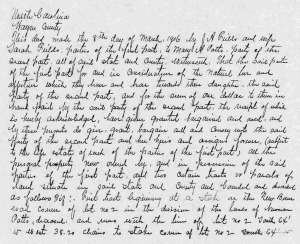 North Carolina
County
This deed made the 8th day of March 1906 by J A Pickle and wife
Sarah Pickle parties of the first part, to Mary A Potts party of the
second part, all of said state and County, witnesseth. That the said parties
of the first part for and in Consideration of the natural love and
affection which they have and bear toward their daughter, the said
party of the second part, and for the sum of one dollar to them in
hand paid by the said party of the second part the receipt of which
is hereby acknowledged, have given granted bargained and sold, and
by these presents do give, grant, bargain sell and convey unto the said
party of the second part and her heirs and assigns forever, (subject
to the life estate of each of the parties of the first part), all the
personal property now owned by, and in possession of the said
parties of the first part, and two certain tracts or parcels of
land situate in said state and County and bounded and described
as follows: First tract beginning at a stake in the New
road corner of lot no 2 in the division of the lands of
Potts, deceased, and runs with the line of lot no 2 South 64°
W 38.20 chains to stake corner of lot no 2 South 64°